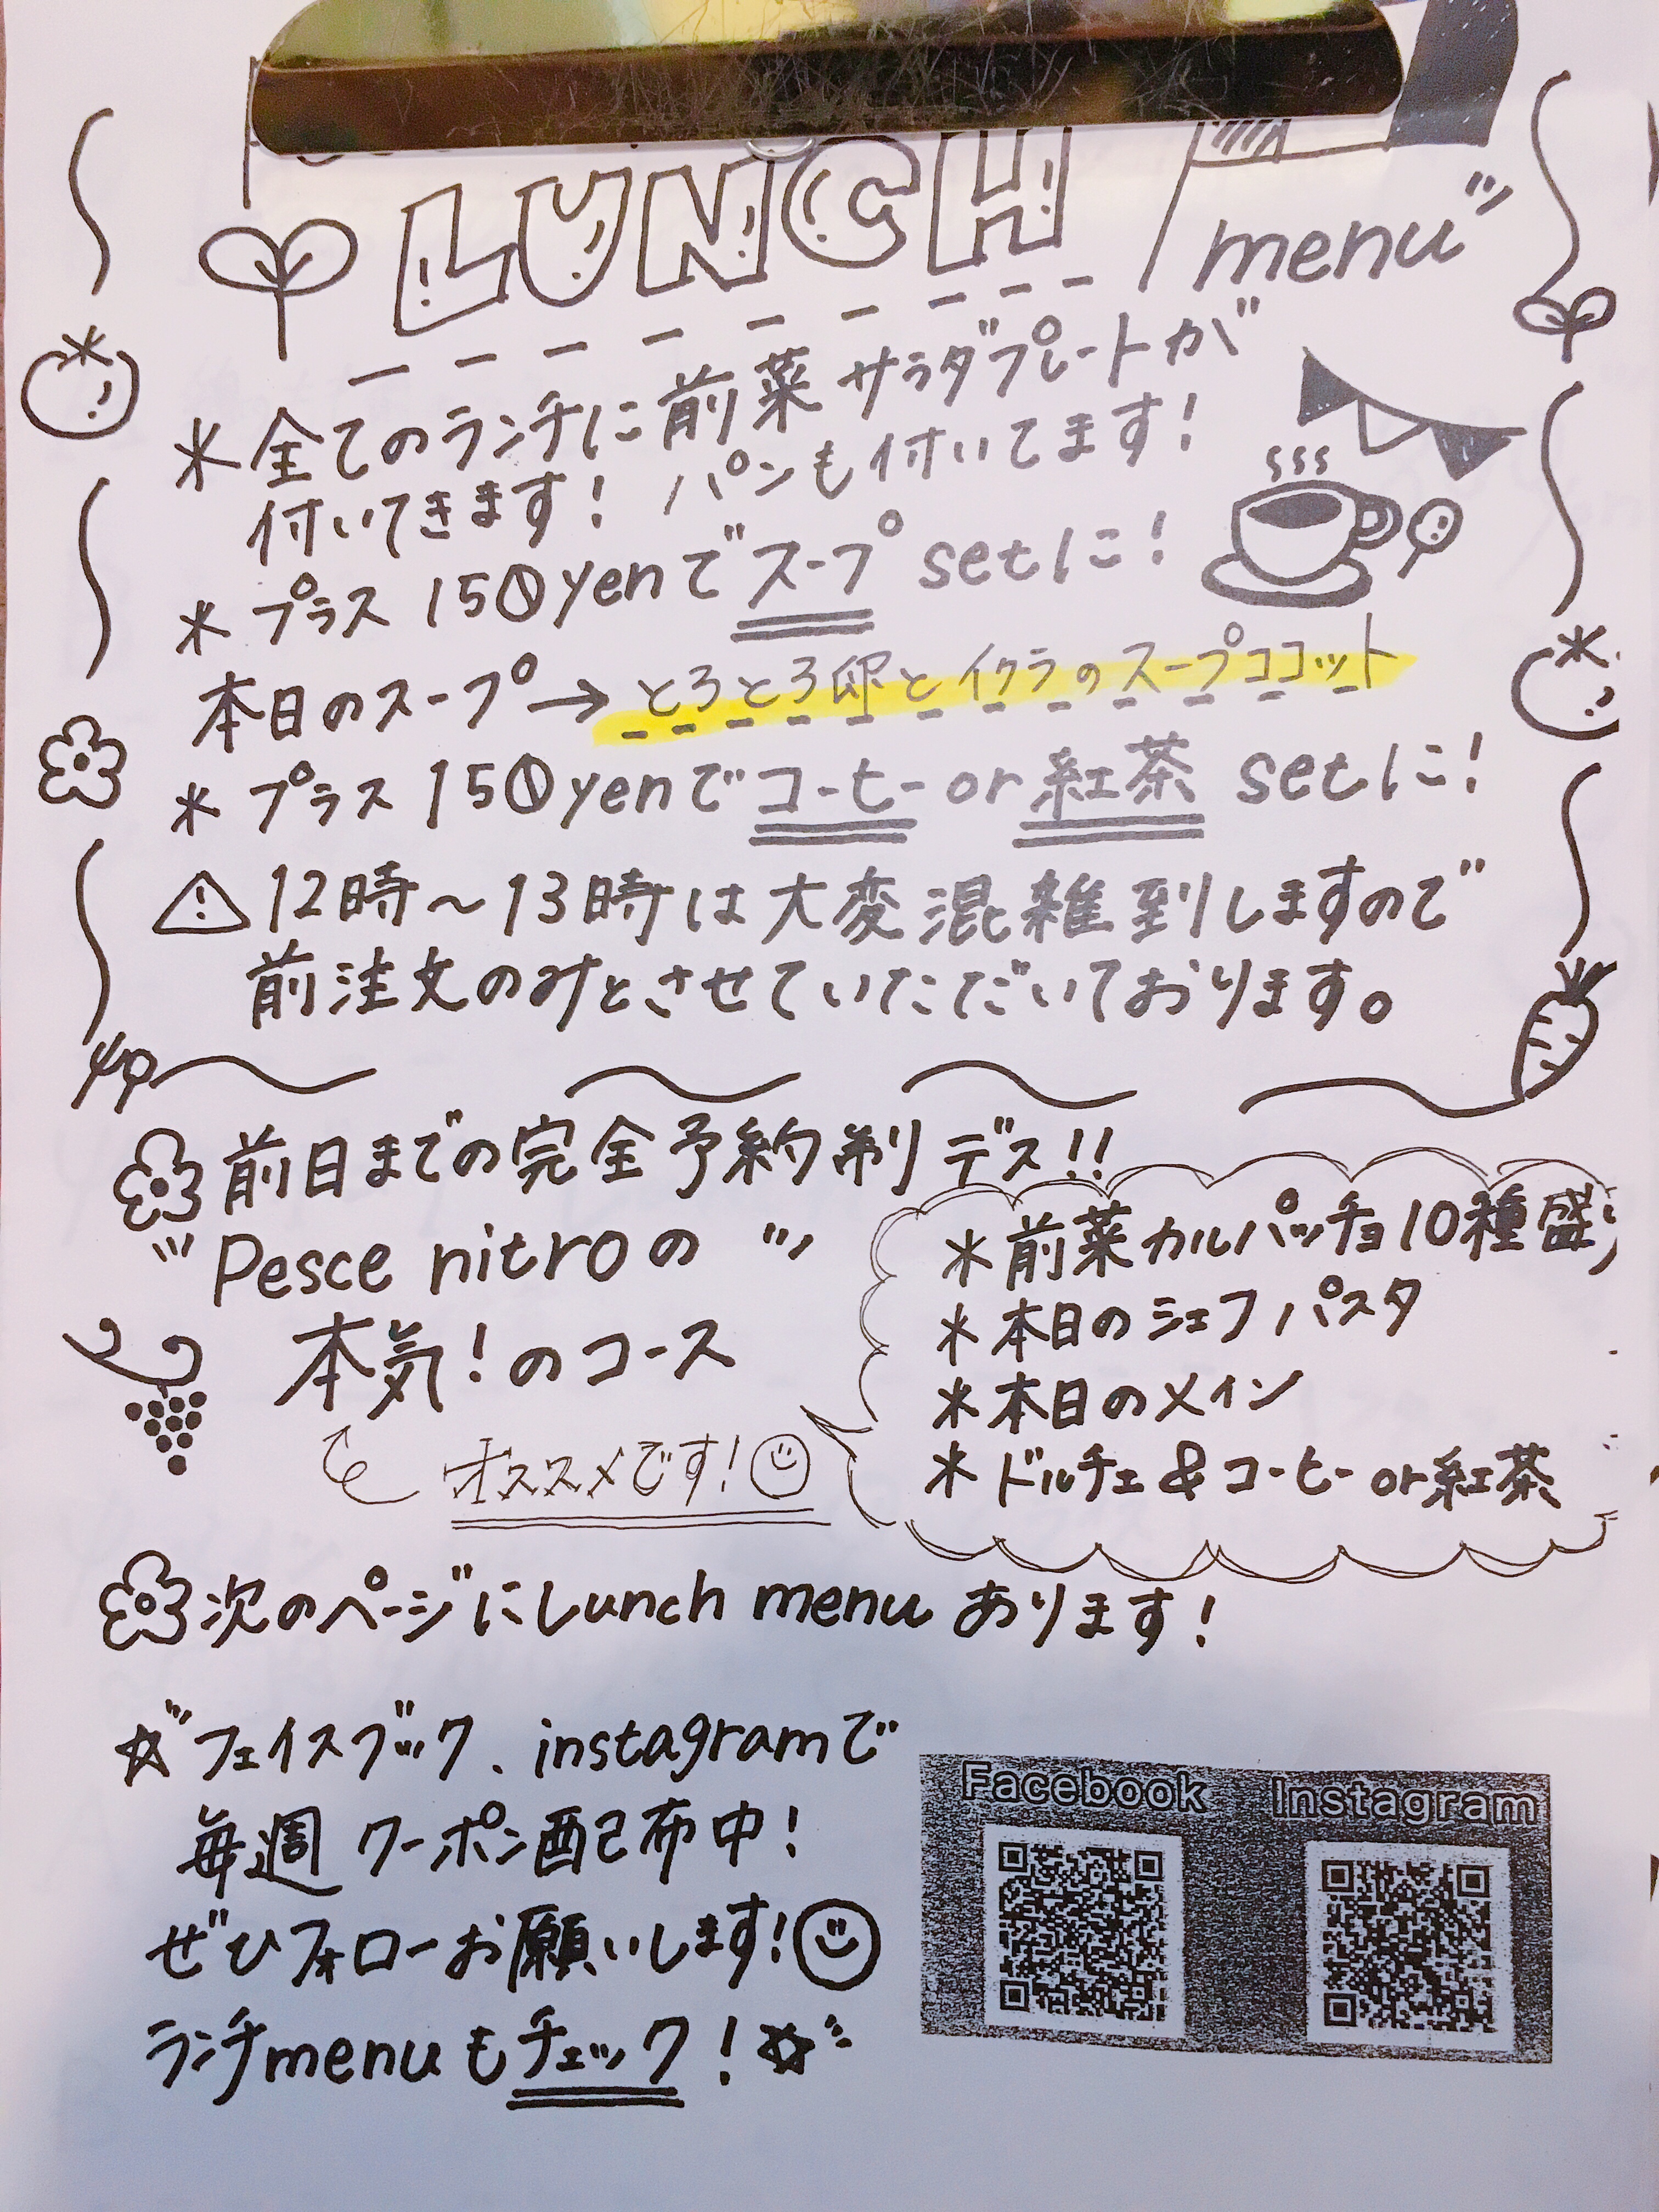 LUNCH menu
＊全てのランチに前菜サラダプレートが
付いてきます！パンも付いてます！
＊プラス150yenでスープsetに！
本日のスープ→とろとろ卵とイクラのスープココット
＊プラス150yenでコーヒーor紅茶setに！
⚠12時〜13時は大変混雑到しますので
前注文のみとさせていただいております。
前日までの完全予約制デス!!
Pesce nitroの
本気！のコース
オススメです！
＊前菜カルパッチョ10種盛り
＊本日のシェフパスタ
＊本日のメイン
＊ドルチェ&コーヒーor紅茶
次のページにLunch menuあります！
☆フェイスブック、instagramで
毎週クーポン配布中！
ぜひフォローお願いします！
ランチmenuもチェック！☆
Facebook Instagram